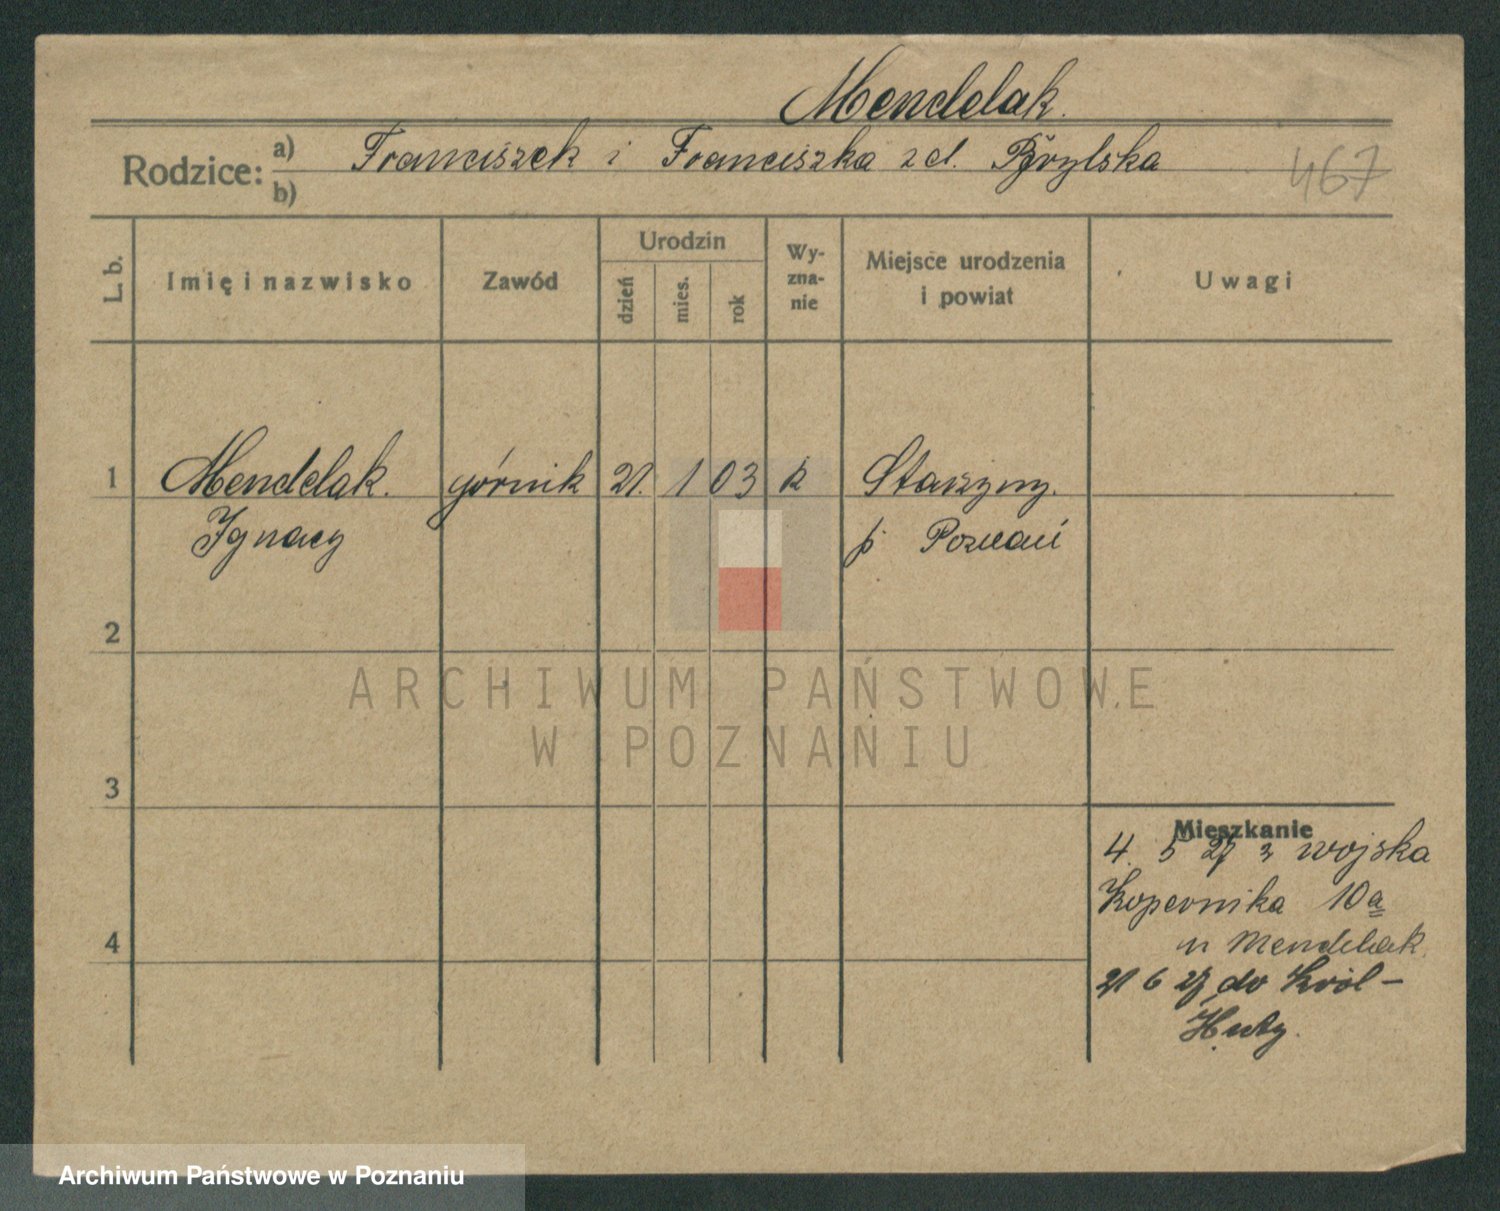 Mendelak.
Rodzice: a) Franciszek i Franciszka z d.
b)
467
L. b.
Imię i nazwisko
Zawód
Urodzin
dzień
mies.
rok
Wy-
zna-
nie
Miejsce urodzenia
i powiat
Uwagi
1 Mendelak. górnik 21. 1 03 k
Ignacy p. Poznań
2
3
4
ARCHIWUM PAŃSTWOWE
W POZNANIU
Mieszkanie
4. 5 27 z wojska
Kopernika 10a
u Mendelak
21 6 27 do Król-
Huty.
Archiwum Państwowe w Poznaniu